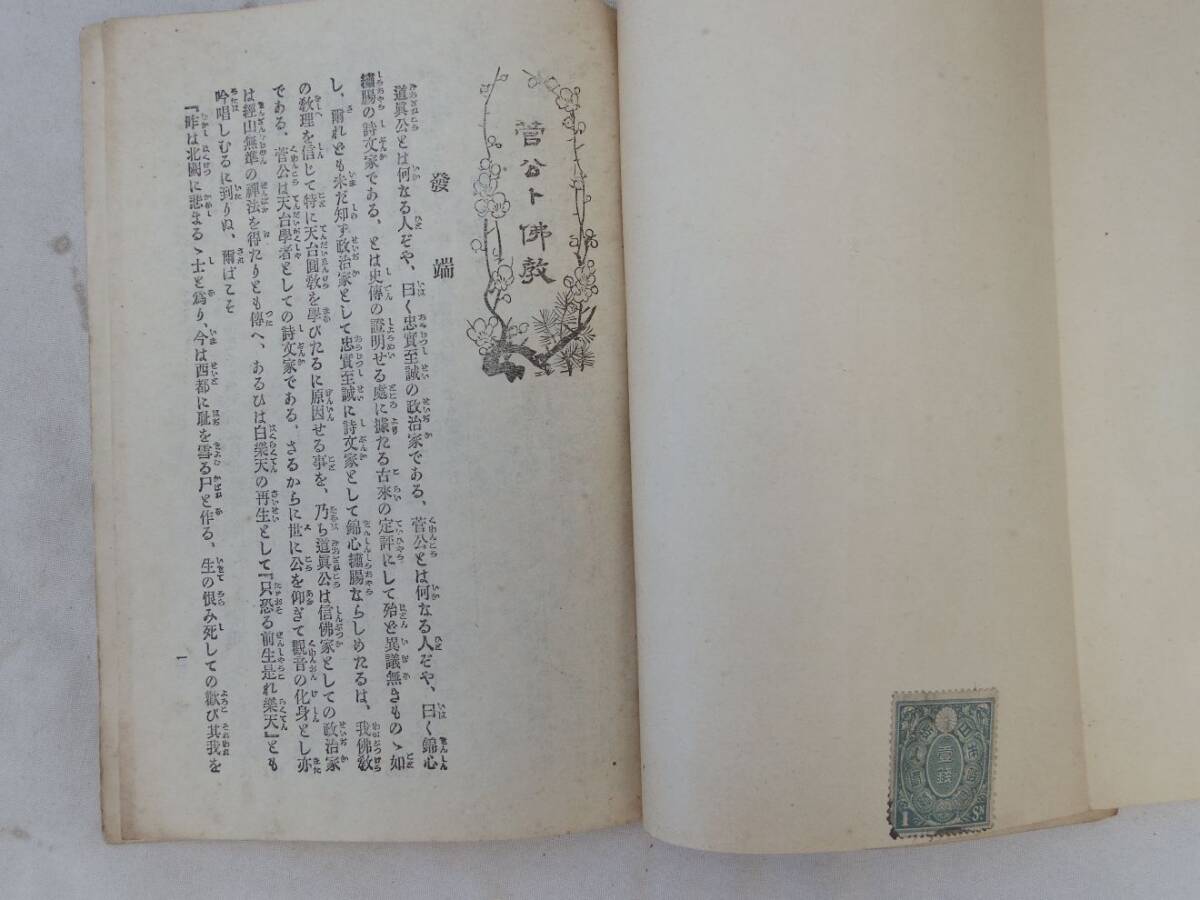 菅公ト佛敎
發端
道眞公とは何なる人ぞや、曰く忠實至誠の政治家である、菅公とは何なる人ぞや、曰く錦心
繡腸の詩文家である、とは史傳の證明せる處に據たる古來の定評にして殆ど異議無きものゝ如
し、爾れども未だ知ず政治家として忠實至誠に詩文家として錦心繡腸ならしめたるは、我佛敎
の敎理を信じて特に天台圓敎を學びたるに原因せる事を、乃ち道眞公は信佛家としての政治家
である、菅公は天台學者としての詩文家である、さるからに世に公を仰ぎて觀音の化身とし亦
は經山無準の禪法を得たりとも傳へ、あるひは白樂天の再生として『只恐る前生是れ樂天』とも
吟唱しむるに到りぬ、爾ばこそ
『昨は北闕に悲まるゝ士と爲り、今は西都に耻を雪る尸と作る、生の恨み死しての歡び其我を
一
壹錢
1 Sn